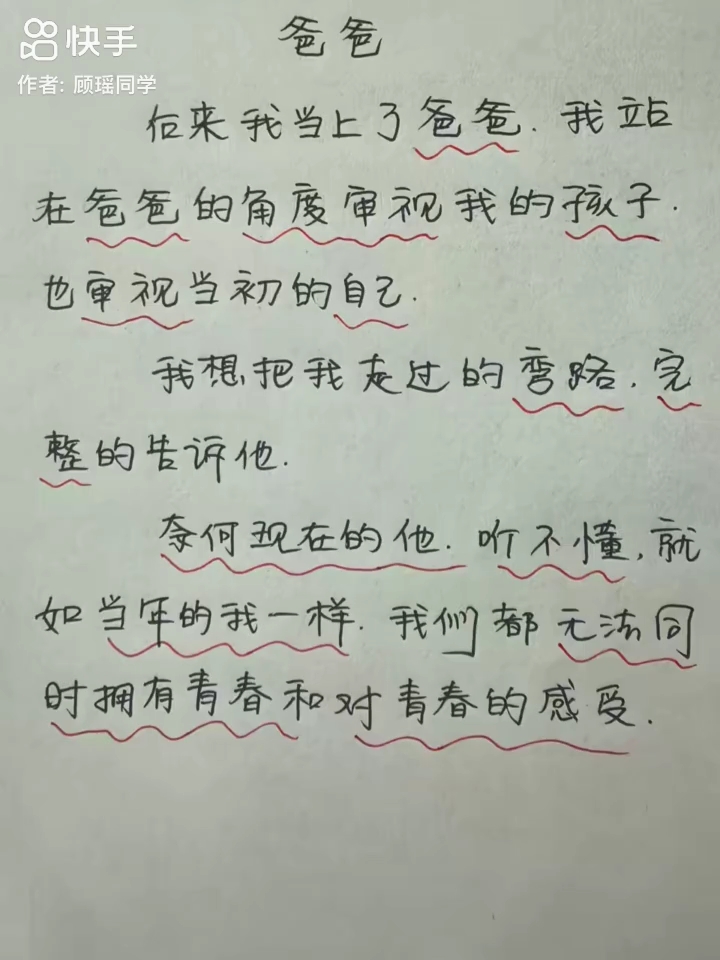 快手
作者: 顾瑶同学
爸爸
后来我当上了爸爸.我站
在爸爸的角度审视我的孩子.
也审视当初的自己.
我想把我走过的弯路.完
整的告诉他.
奈何现在的他.听不懂,就
如当年的我一样.我们都无法同
时拥有青春和对青春的感受.